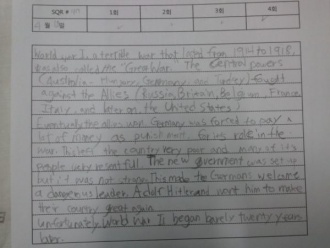 SQR
1회 2회 3회 4회
World war I, a terrible war that lasted from 1914 to 1918,
was also called the "Great War." The Central powers
Hungary, Germany, and Turkey) fought
against the Allies (Russia, Britain, France
Italy, and later on the United States)
Eventually the allies won. Germany was forced to pay a
lot of money as punishment for its role in the
war. This left the country very poor and many of its
people very resentful. The new government was set up
but it was not strong. This made to Germans welcome
a dangerous leader, Adolf Hitler and want him to make
their country great again.
Unfortunately, World War II began barely twenty years
later.